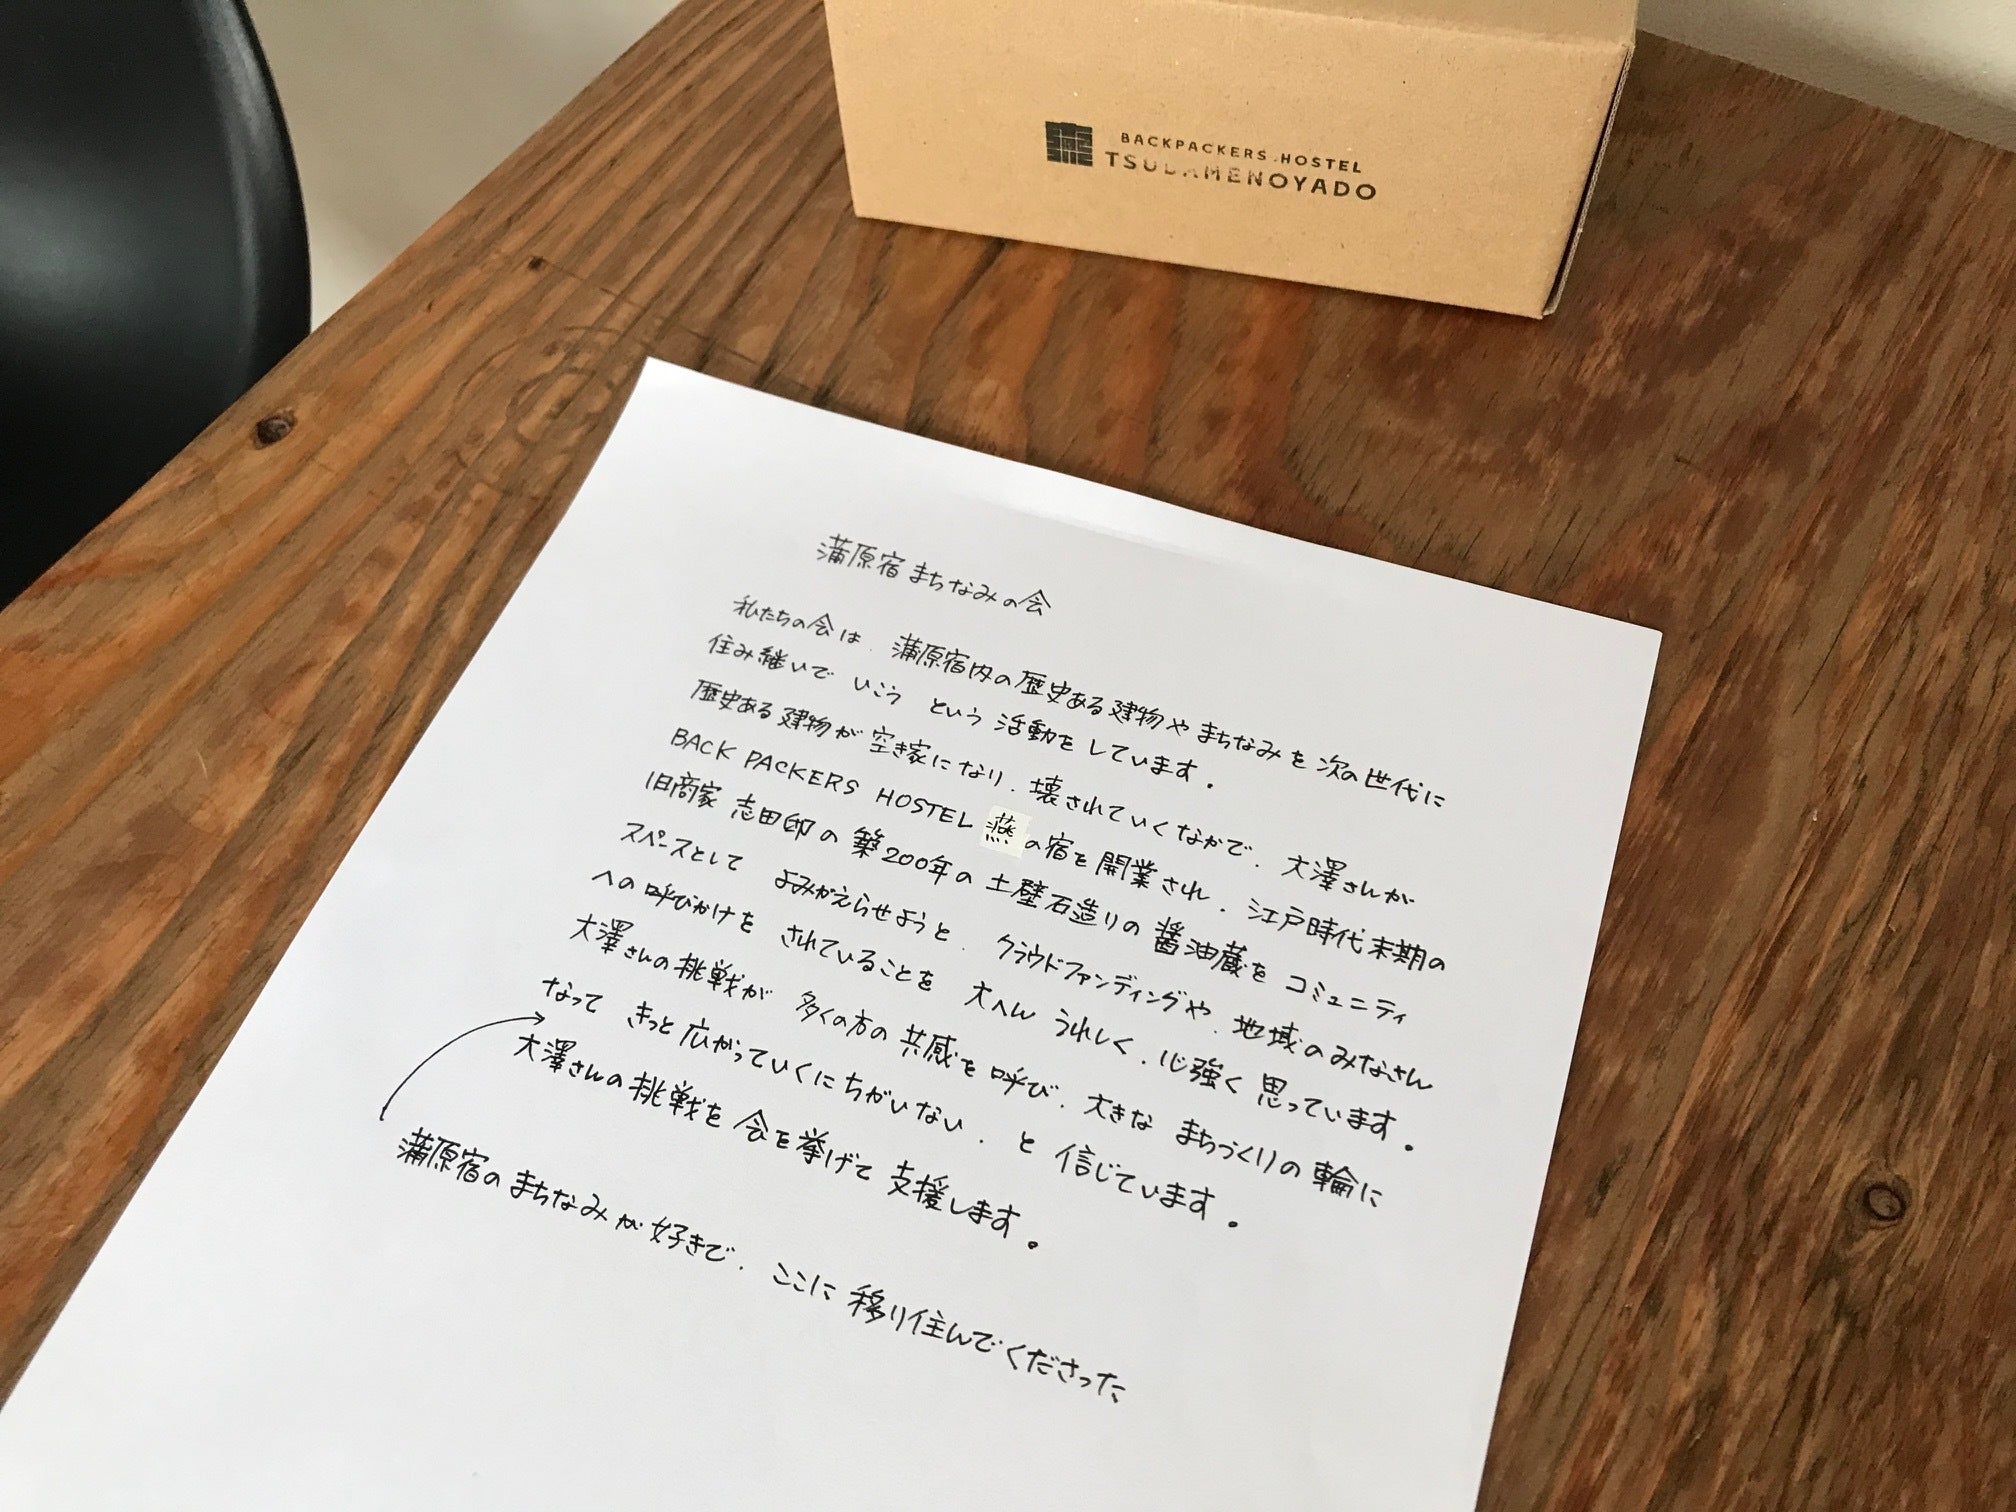 BACKPACKERS HOSTEL
TSUBAMENOYADO
蒲原宿まちなみの会
私たちの会は、蒲原宿内の歴史ある建物やまちなみを次の世代に
住み継いでいこうという活動をしています。
歴史ある建物が空き家になり、壊されていくなかで、大澤さんが
BACK PACKERS HOSTEL 燕の宿を開業され、江戸時代末期の
旧商家 志田邸の築200年の土壁石造りの醤油蔵をコミュニティ
スペースとして よみがえらせようと、クラウドファンディングや、地域のみなさん
への呼びかけをされていることを 大へんうれしく、心強く思っています。
大澤さんの挑戦が 多くの方の共感を呼び、大きな まちづくりの輪に
なって きっと広がっていくにちがいない、と信じています。
大澤さんの挑戦を会を挙げて支援します。
蒲原宿のまちなみが好きで、ここに移り住んでくださった